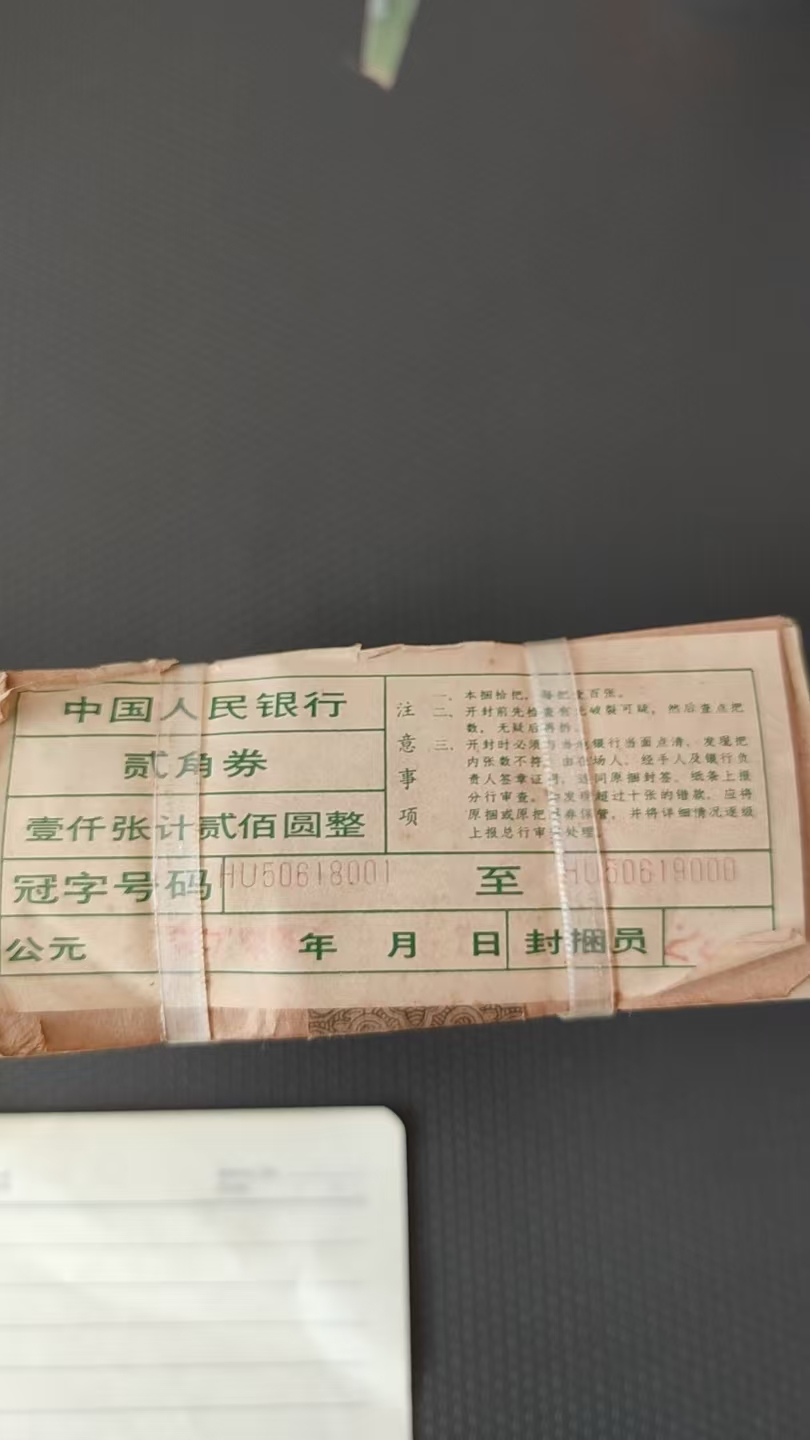 中国人民银行
贰角券
壹仟张计贰佰圆整
冠字号码 HU50618001 至 HU50619000
公元 年 月 日 封捆员
注意事项
一、本捆拾把，每把壹百张。
二、开封前先检查有无破裂可疑，然后查点把
数，无疑后再拆。
三、开封时必须与当地银行当面点清，发现把
内张数不符，由在场人、经手人及银行负
责人签章证明，连同原捆封签、纸条上报
分行审查。如发现超过十张的错款，应将
原捆或原把票券保管，并将详细情况逐级
上报总行审查处理。